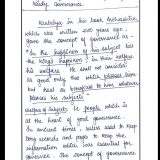 Ready Governance.
Kautilya, in his book Arthashastra,
which was written 2500 years ago
gave the concept of governance as
"In the happiness of his subject lies
the King's happiness, in their welfare
his welfare. He shall not consider
as good only that which pleases him
but treat as beneficial to him whatever
pleases his subjects".
Welfare of subjects i.e. people which is
at the heart of good governance.
In ancient times, rulers used to keep
secrets and spies to keep the
information which was essential for
governance. The concept of governance